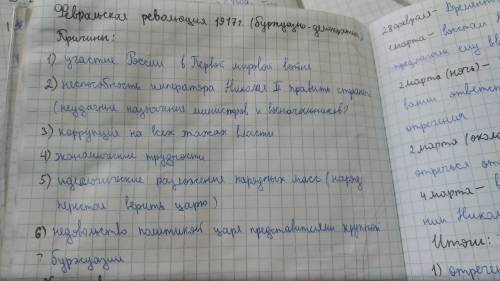 Февральская революция 1917г. (буржуазно-демократич.)
Причины:
1) участие России в Первой мировой войне
2) неспособность императора Николая II править страной
(неудачные назначения министров и военачальников)
3) коррупция на всех этажах власти
4) экономические трудности
5) идеологические разложение народных масс (народ
перестал верить царю)
6) недовольство политикой царя представителями крупной
буржуазии
28 февраля-
1 марта -
предлагали ему
2 марта (ночь) -
вании ответст
отречения
2 марта (около
отречься от
4 марта -
нии Никола
Итоги:
1) отречен